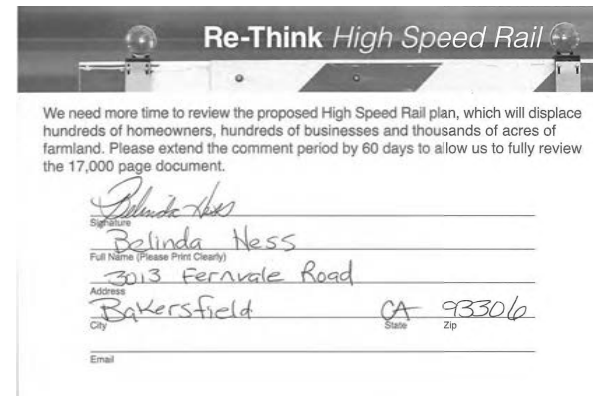 Re-Think High Speed Rail
We need more time to review the proposed High Speed Rail plan, which will displace
hundreds of homeowners, hundreds of businesses and thousands of acres of
farmland. Please extend the comment period by 60 days to allow us to fully review
the 17,000 page document.
Belinda Ness
Signature
Belinda Ness
Full Name (Please Print Clearly)
3013 Fernvale Road
Address
Bakersfield CA 93306
City State Zip
Email